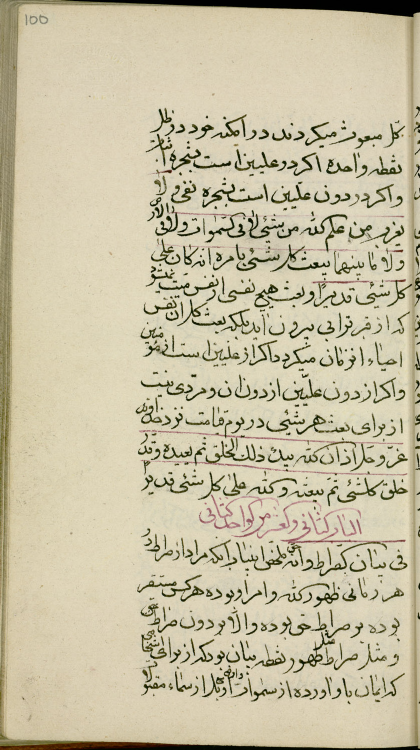 100
کل مبعوث میکردند در امکنه خود در ظل
نقطه واحده اگر در علیین است بشجره اثبات
و اگر در دون علیین است بشجره نفی و لا
یعزب من علم الله من شیئ لا فی السموات و لا فی الارض
و لا ما بینهما یبعث کل شیئ بامره انه کان علی
کل شیئ قدیرا و بعث هیچ نفسی از نفس میت نمیشود
که از قبر ترابی بیرون آید بلکه بعث کل از نفس
احیاء انزمان میگردد اگر از علیین است از مؤمنین
و اگر از دون علیین از دون ان و مردی نیست
از برای بعث هر شیئی در یوم قیامت نزد خداوند
عز و جل اذ ان الله یبدء ذلک الخلق ثم یعیده و قدر
خلق کلشیئ ثم یبعثه و الله علی کل شیئ قدیرا
الباب الثانی و العشر من الواحد الثانی
فی بیان الصراط و انه لحق بیان آنکه مراد از صراط در
هر زمانی ظهور الله و امر او بوده هر کس مستقر
بوده بر صراط حق بوده و الا بر دون صراط حق
و مثل صراط ظهور نقطه بیان بود که از برای
که ایمان باو آورده از سموات و ارض